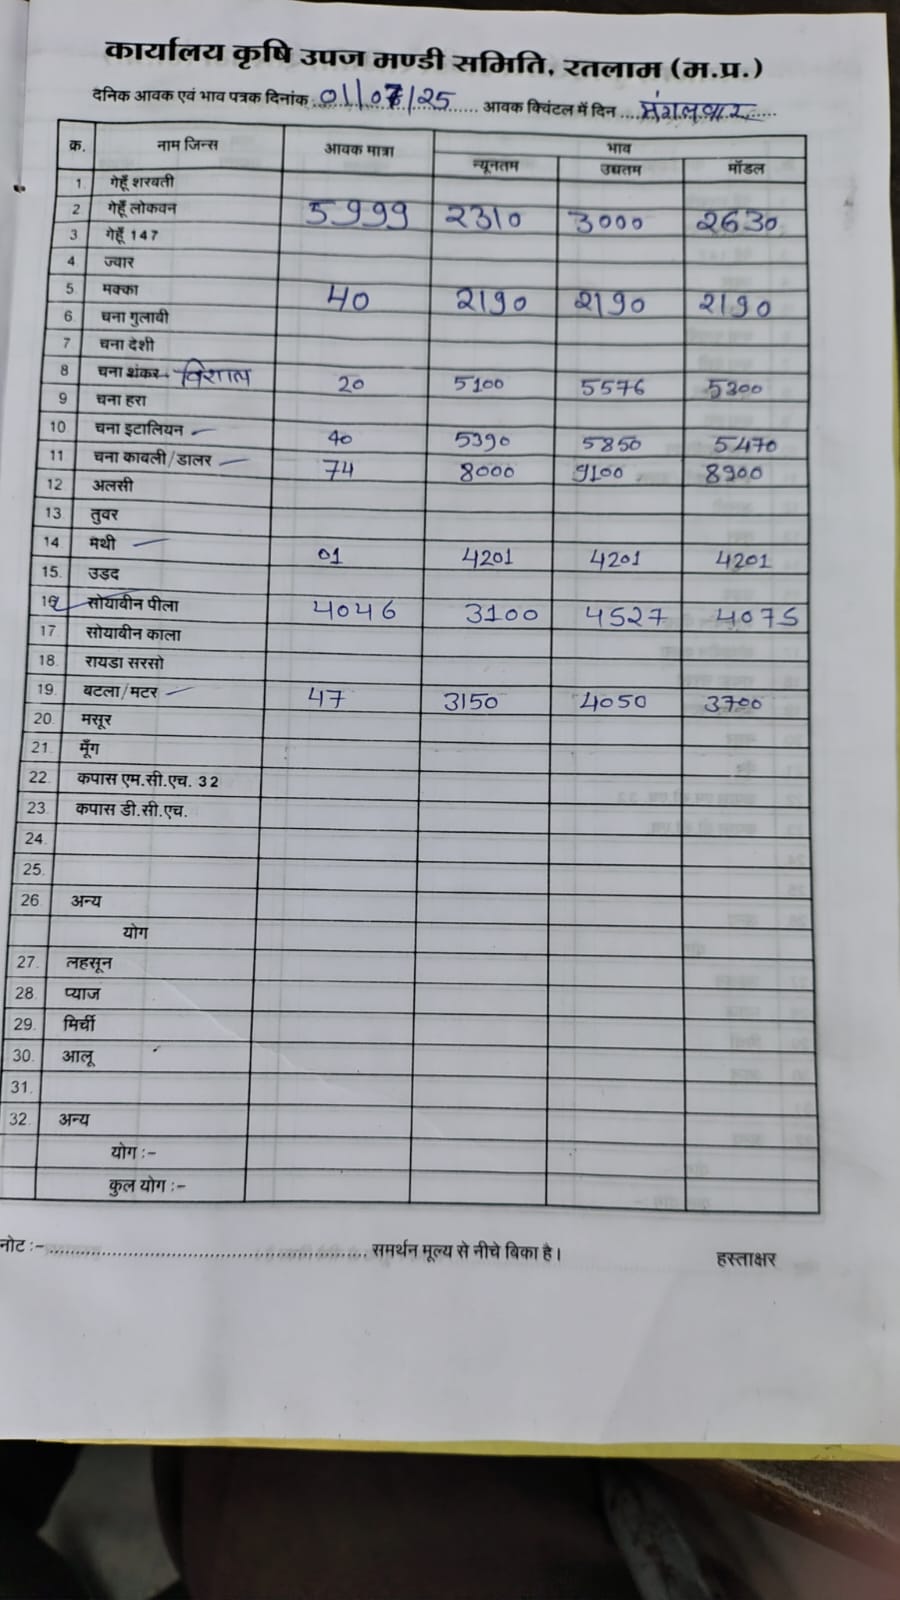 कार्यालय कृषि उपज मण्डी समिति, रतलाम (म.प्र.)
दैनिक आवक एवं भाव पत्रक दिनांक 01/07/25 आवक क्विंटल में दिन मंगलवार
क्र. नाम जिन्स आवक मात्रा भाव
न्यूनतम उच्चतम मॉडल
1. गेहूँ शरबती
2 गेहूँ लोकवन 5999 2310 3000 2630
3 गेहूँ 147
4. ज्वार
5. मक्का 40 2190 2190 2190
6. चना गुलाबी
7. चना देशी
8 चना शंकर विशाल 20 5100 5576 5300
9. चना हरा
10 चना इटालियन 40 5390 5850 5470
11 चना काबली/डालर 74 8000 9100 8900
12 अलसी
13. तुवर
14 मेथी 01 4201 4201 4201
15. उड़द
16 सोयाबीन पीला 4046 3100 4527 4075
17. सोयाबीन काला
18. रायडा सरसो
19. बटला/मटर 47 3150 4050 3700
20. मसूर
21. मूँग
22. कपास एम.सी.एच. 32
23. कपास डी.सी.एच.
24.
25.
26 अन्य
योग
27. लहसून
28. प्याज
29. मिर्ची
30. आलू
31.
32. अन्य
योग :-
कुल योग :-
नोट :- समर्थन मूल्य से नीचे बिका है।
हस्ताक्षर